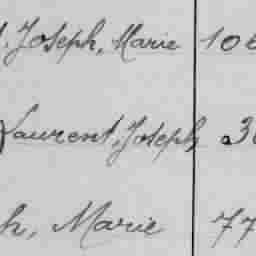 . Joseph, Marie 106
Laurent, Joseph 30
h, Marie 77